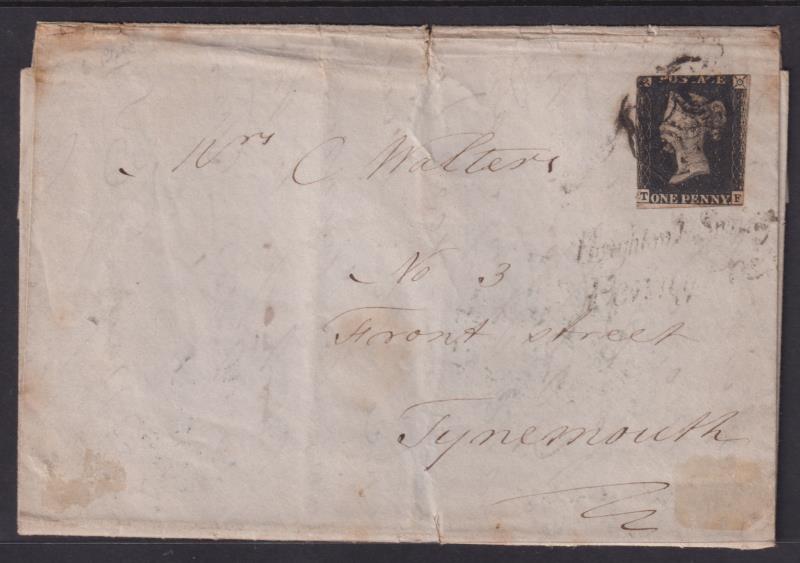 POSTAGE
T ONE PENNY F
Mrs C Walters
Penny
No 3
Front street
Tynemouth